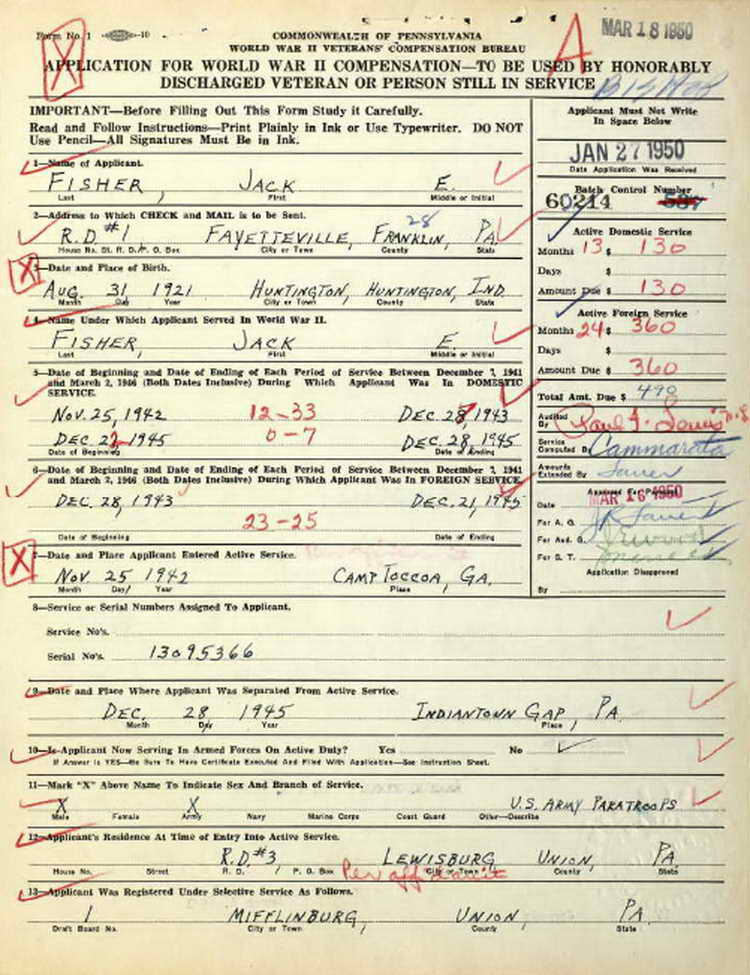 Form No. 1 10
MAR 18 1950
COMMONWEALTH OF PENNSYLVANIA
WORLD WAR II VETERANS' COMPENSATION BUREAU
X
A
APPLICATION FOR WORLD WAR II COMPENSATION—TO BE USED BY HONORABLY
DISCHARGED VETERAN OR PERSON STILL IN SERVICE
IMPORTANT—Before Filling Out This Form Study it Carefully.
Read and Follow Instructions—Print Plainly in Ink or Use Typewriter. DO NOT
Use Pencil—All Signatures Must Be in Ink.
1—Name of Applicant.
FISHER, JACK E.
Last First Middle or Initial
2—Address to Which CHECK and MAIL is to be Sent.
28
R.D. #1 FAYETTEVILLE, FRANKLIN, PA.
House No. St. R. D./P. O. Box City or Town County State
X
3—Date and Place of Birth.
AUG. 31 1921 HUNTINGTON, HUNTINGTON, IND.
Month Day Year City or Town County State
4—Name Under Which Applicant Served In World War II.
FISHER, JACK E.
Last First Middle or Initial
5—Date of Beginning and Date of Ending of Each Period of Service Between December 7, 1941
and March 2, 1946 (Both Dates Inclusive) During Which Applicant Was In DOMESTIC
SERVICE.
NOV. 25, 1942 12-33 DEC. 28, 1943
DEC. 22, 1945 0-7 DEC. 28, 1945
Date of Beginning Date of Ending
6—Date of Beginning and Date of Ending of Each Period of Service Between December 7, 1941
and March 2, 1946 (Both Dates Inclusive) During Which Applicant Was In FOREIGN SERVICE.
DEC. 28, 1943 DEC. 21, 1945
23-25
Date of Beginning Date of Ending
X
7—Date and Place Applicant Entered Active Service.
NOV 25 1942 CAMP TOCCOA, GA.
Month Day/ Year Place
8—Service or Serial Numbers Assigned To Applicant.
Service No's.
Serial No's. 13095366
9—Date and Place Where Applicant Was Separated From Active Service.
DEC. 28 1945 INDIANTOWN GAP, PA.
Month Day Year Place
10—Is Applicant Now Serving In Armed Forces On Active Duty? Yes No ✓
If Answer is YES—Be Sure To Have Certificate Executed And Filed With Application—See Instruction Sheet.
11—Mark "X" Above Name To Indicate Sex and Branch of Service.
X X U.S. ARMY PARATROOPS
Male Female Army Navy Marine Corps Coast Guard Other—Describe
12—Applicant's Residence At Time of Entry Into Active Service.
R.D. #3, LEWISBURG UNION, PA.
House No. Street R. D. / P. O. Box City or Town County State
Per affidavit
13—Applicant Was Registered Under Selective Service As Follows.
1 MIFFLINBURG, UNION, PA.
Draft Board No. City or Town County State
Applicant Must Not Write
In Space Below
JAN 27 1950
Date Application Was Received
Batch Control Number
60214 587
Active Domestic Service
Months 13 $ 130
Days $
Amount Due $ 130
Active Foreign Service
Months 24 $ 360
Days $
Amount Due $ 360
Total Amt. Due $ 490
Audited
By
Service
Computed By Cammarata
Amounts
Extended By
MAR 16 1950
Date
For A. G.
For Aud. G.
For S. T.
Application Disapproved
By